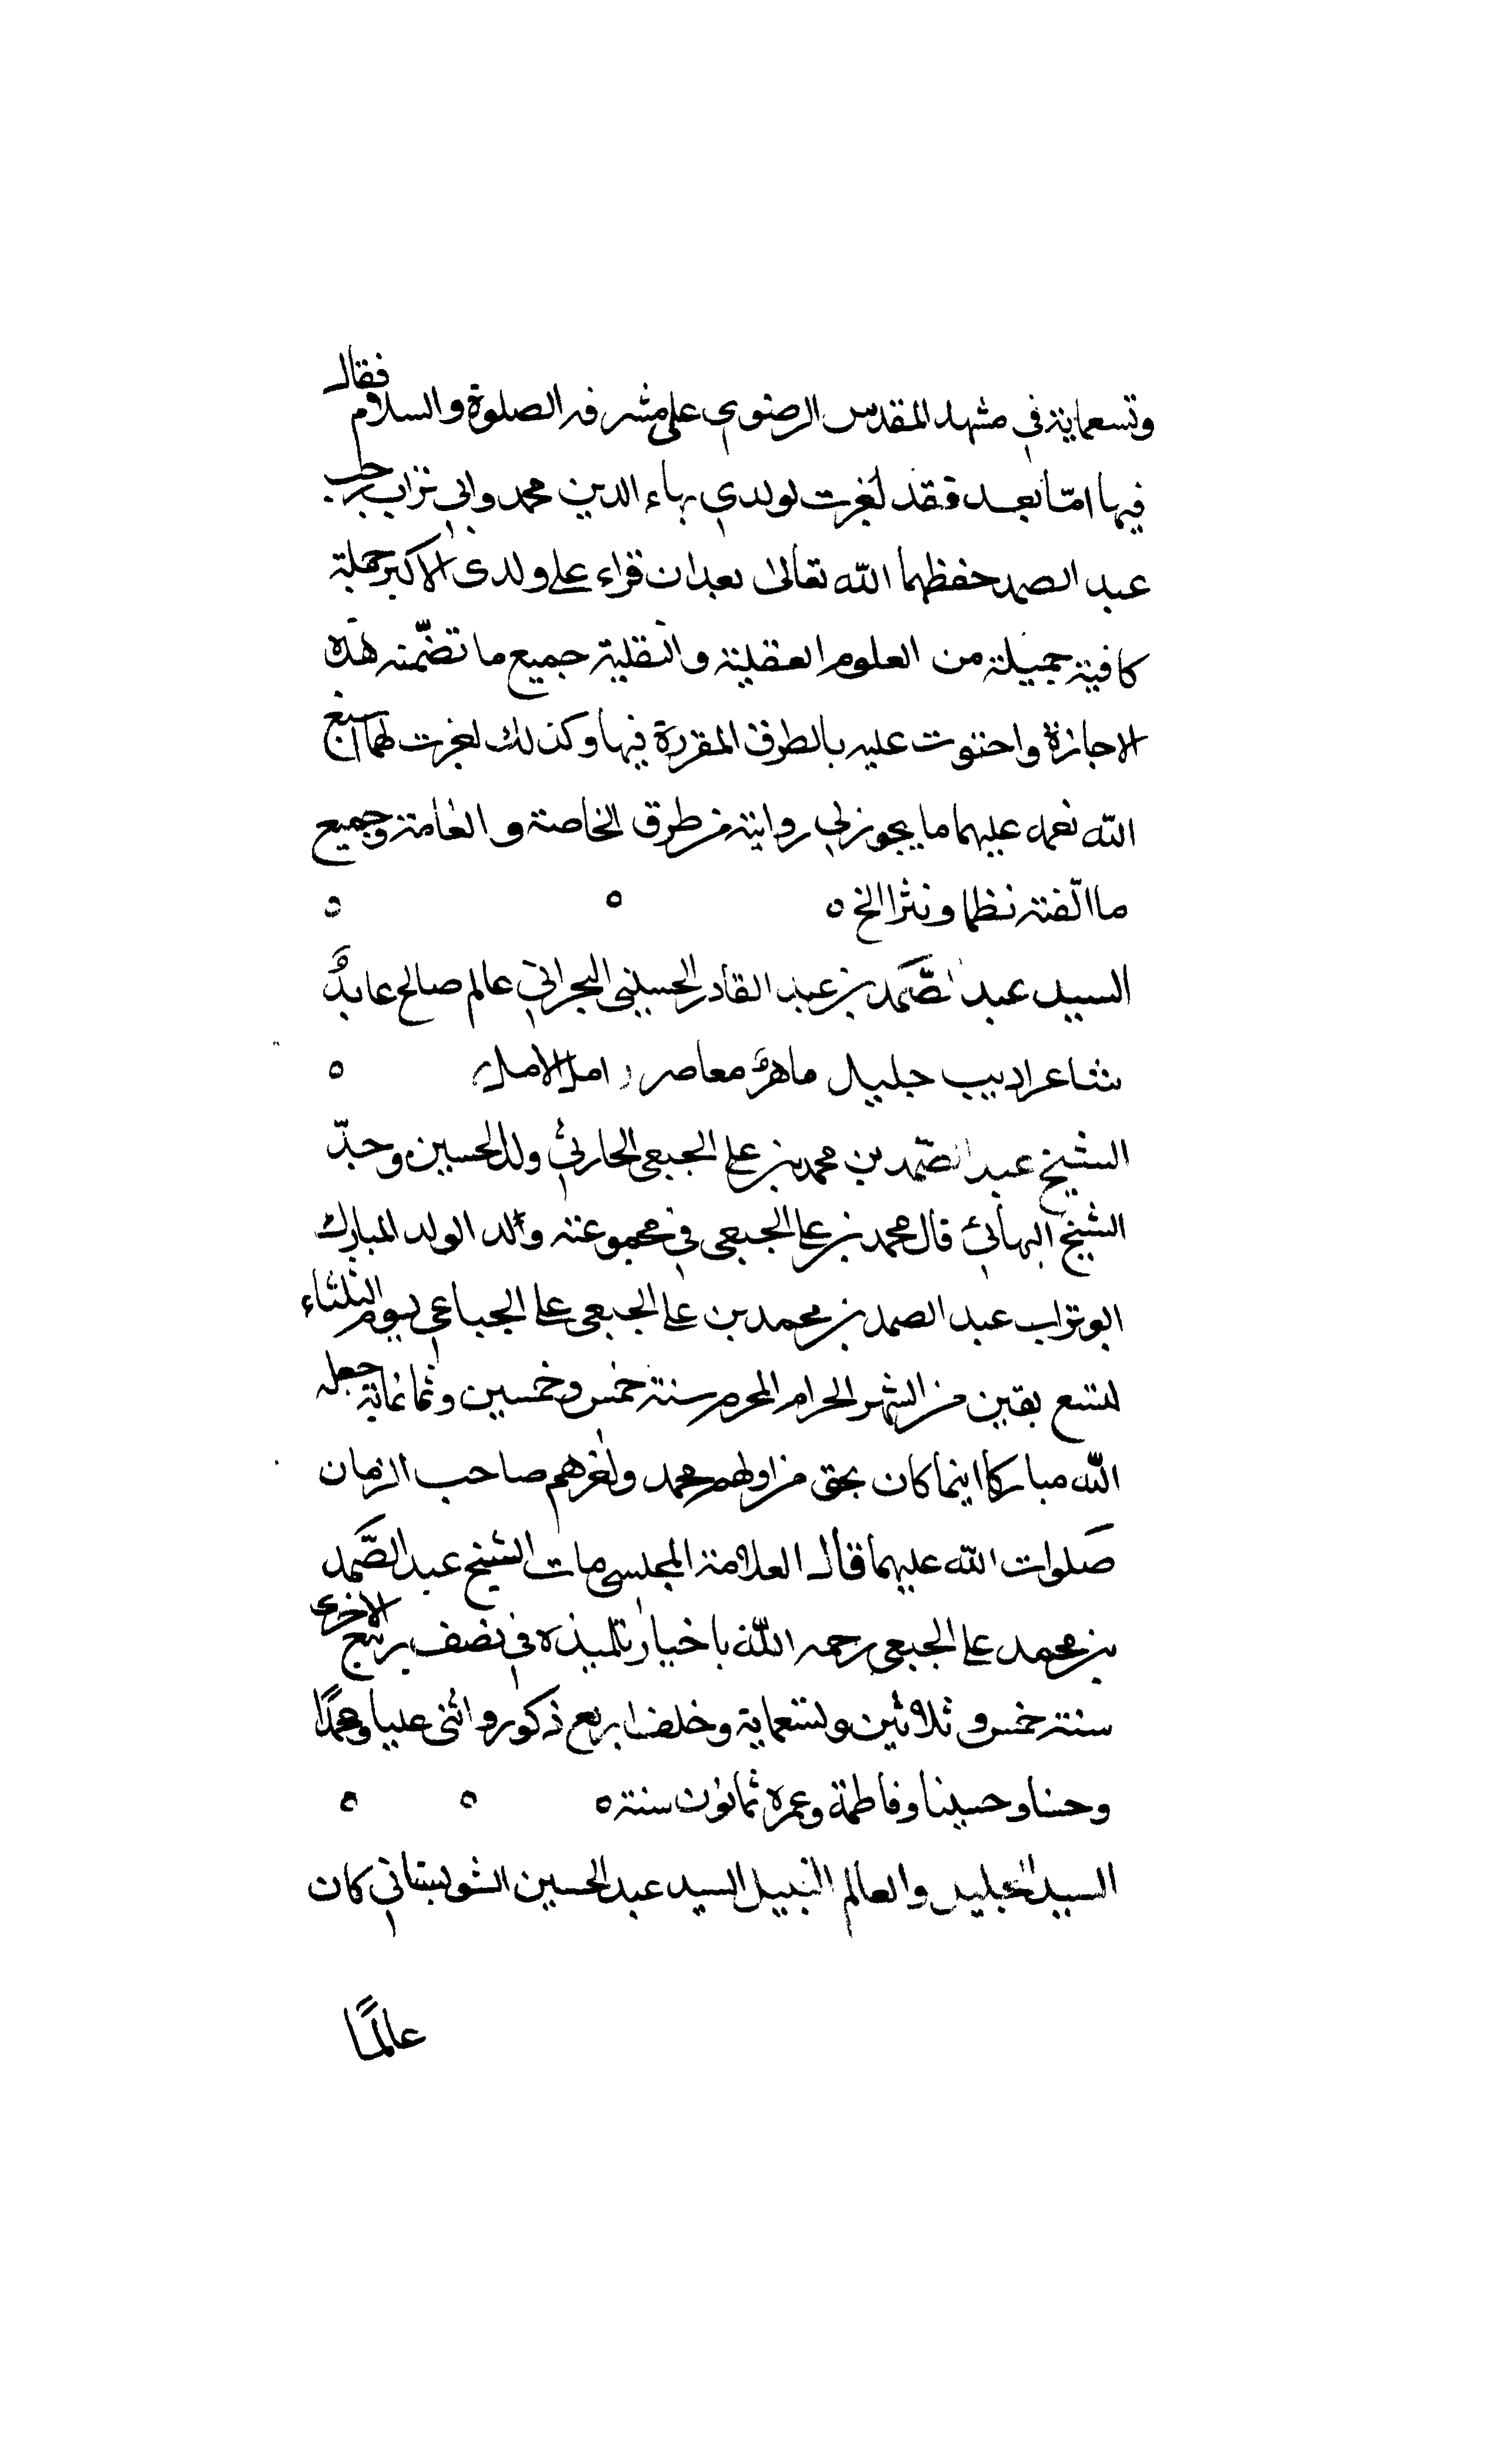 وتسعماية في مشهد المقدس الرضوي على مشرفه الصلوة والسلام فقال
فيها امّا بعد فقد اجزت لولدي بهاء الدين محمد وابي تراب رجب
عبد الصمد حفظهما الله تعالى بعد ان قراء على ولدى الاكبر جملة
كافية جميلة من العلوم العقلية والنقلية جميع ما تضّمنه هذه
الاجازة واحتوت عليه بالطرق المقررة فيها وكذلك اجزت لهما اسبغ
الله نعمه عليهما ما يجوز لي روايته من طرق الخاصة والعامة وجميع
ما الّفته نظما ونثرا الخ ٥ ٥ ٥
السيد عبد الصَّمد بن عبد القادر الحسيني البحراني عالم صالح عابدٌ
شاعر اديب جليل ماهرٌ معاصر امل الامل ٥
الشيخ عبد الصّمد بن محمد بن على الجبعى الحارثي ولد الحسين وجدّ
الشيخ البهائي قال محمد بن على الجبعى في مجموعته وُلد الولد المبارك
ابو تراب عبد الصمد بن محمد بن على الجبعى على الجباعي يوم الثلثاء
لتسع بقين من الشهر الحرام المحرم سنة خمس وخمسين وثمانماية جعله
الله مباركا اينما كان بحق من اولهم محمد واخرهم صاحب الزمان
صَلوات الله عليهما قال العلامة المجلسى مات الشيخ عبد الصَّمد
بن محمد على الجبعى رحمه الله باخبار تلميذه في نصف ربيع الاخرى
سنة خمس وثلاثين وتسعماية وخلف اربع ذكور وانثى عليا ومحمدًا
وحسنا وحسينا وفاطمة وعمره ثمانون سنة ٥ ٥ ٥
السيد الجليل والعالم النبيل السيد عبد الحسين الشولستاني كان
عالمًا